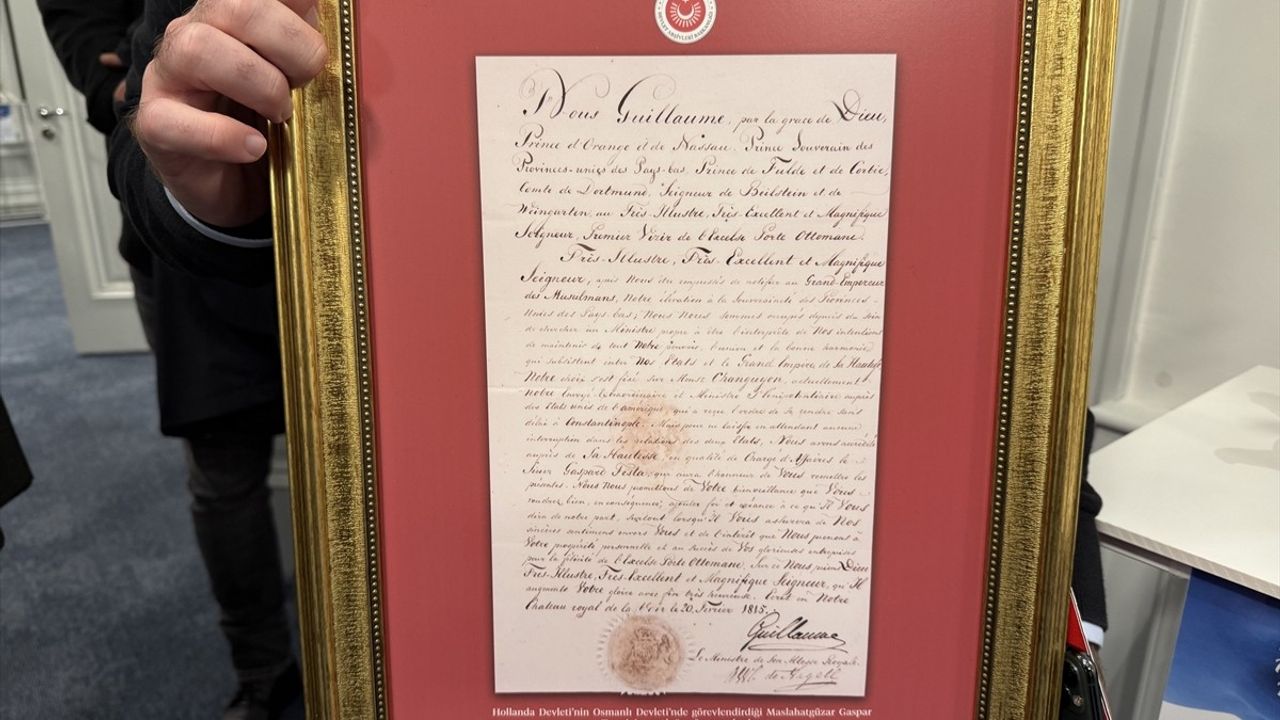 DEVLET ARŞİVLERİ BAŞKANLIĞI
Nous Guillaume, par la grace de Dieu,
Prince d'Orange et de Nassau, Prince Souverain des
Provinces-unies des Pays-bas, Prince de Fulde et de Corbie,
Comte de Dortmund, Seigneur de Beilstein et de
Weingarten, au Très-Illustre, Très-Excellent et Magnifique
Seigneur, Premier Vizir de l'Excelse Porte Ottomane.
Très-Illustre, Très-Excellent et Magnifique
Seigneur, après Nous être empressés de notifier au Grand-Empereur
des Musulmans, Notre élévation à la Souveraineté des Provinces-
Unies des Pays-bas; Nous Nous sommes occupés depuis du soin
de chercher un Ministre propre à être l'interprète de Nos intentions
de maintenir de tout Notre pouvoir, l'union et la bonne harmonie
qui subsistent entre Nos Etats et le Grand Empire de Sa Hautesse
Notre choix s'est fixé sur Monsr Changuyon, actuellement
notre Envoyé Extraordinaire et Ministre Plénipotentiaire auprès
des Etats unis de l'amérique, qui a reçu l'ordre de se rendre sans
délai à Constantinople. Mais pour ne laisser en attendant aucune
interruption dans les relations des deux Etats, Nous avons accrédité
auprès de Sa Hautesse, en qualité de Chargé d'Affaires le
Sieur Gaspard Testa, qui aura l'honneur de Vous remettre les
présentes. Nous Nous promettons de Votre bienveillance que Vous
voudrez bien, en conséquence, ajouter foi et créance à ce qu'Il Vous
dira de notre part, surtout lorsqu'Il Vous assurera de Nos
sincères sentimens envers Vous et de l'intérêt que Nous prenons à
Votre prospérité personnelle et au succès de Vos glorieuses entreprises
pour la félicité de l'Excelse Porte Ottomane. Sur ce Nous prions Dieu
Très-Illustre, Très-Excellent et Magnifique Seigneur, qu'Il
augmente Votre gloire avec fin très heureuse. Ecrit en Notre
Chateau royal de la le 20. Fevrier 1815.
Guillaume
Le Ministre de Son Altesse Royale
de Nagell
Hollanda Devleti'nin Osmanlı Devleti'nde görevlendirdiği Maslahatgüzar Gaspar